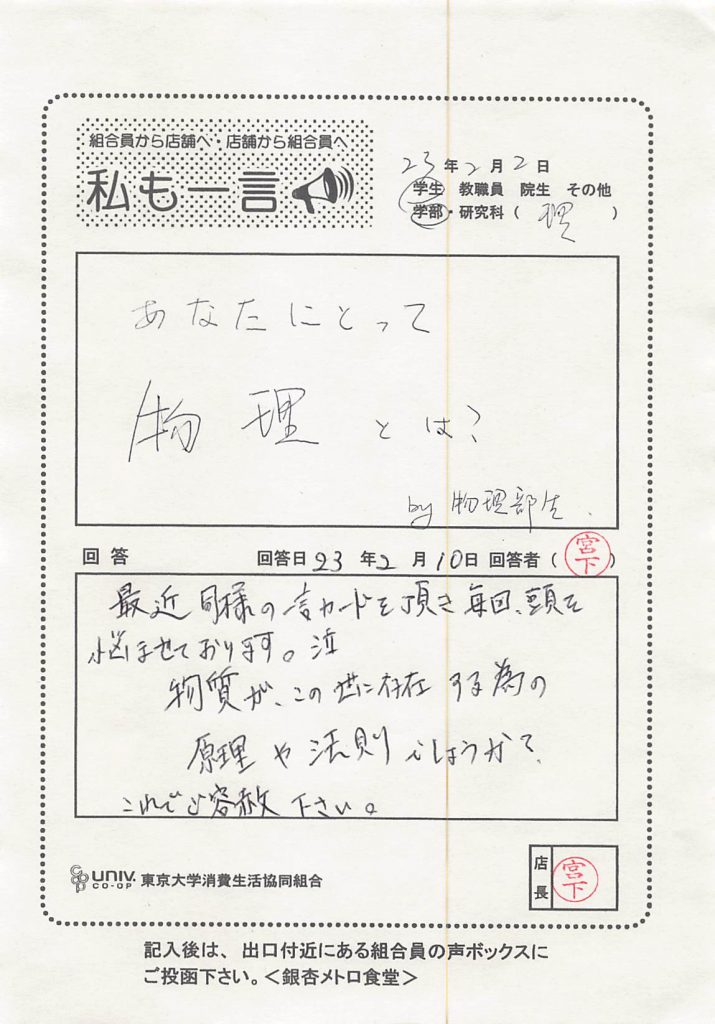 組合員から店舗へ・店舗から組合員へ
私も一言
23年2月2日
学生 教職員 院生 その他
学部・研究科(理)
あなたにとって
物理とは?
by 物理部生.
回答 回答日23年2月10日 回答者(宮下)
最近同様の一言カードを頂き毎回、頭を
悩ませております。泣
物質が、この世に存在する為の
原理や法則でしょうか?
これでご容赦下さい。
CO-OP UNIV. CO-OP 東京大学消費生活協同組合
店長 宮下
記入後は、出口付近にある組合員の声ボックスに
ご投函下さい。<銀杏メトロ食堂>